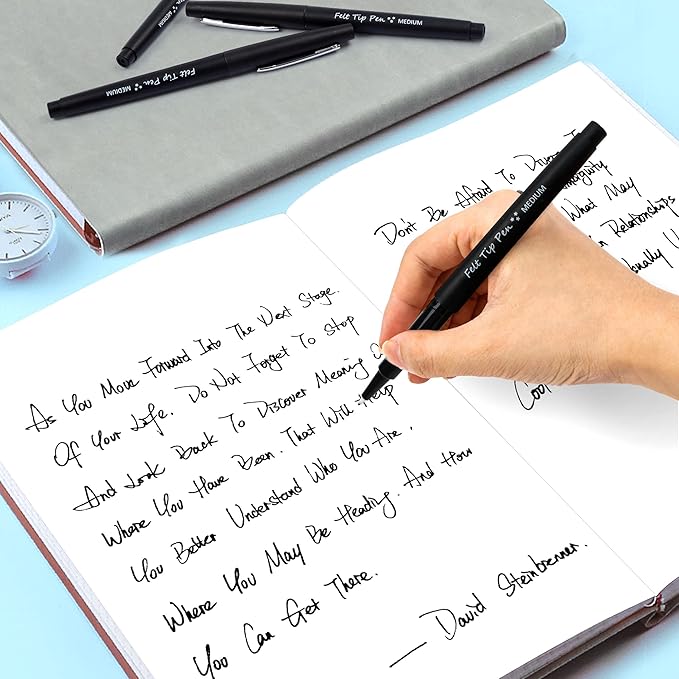 Felt Tip Pen MEDIUM
Felt Tip Pen MEDIUM
MEDIUM
As You Move Forward Into The Next Stage.
Of Your Life. Do Not Forget To Stop
And Look Back To Discover Meaning
Where You Have Been. That Will Help
You Better Understand Who You Are.
Where You May Be Heading. And How
You Can Get There.
— David Steinbrenner.
Don't Be Afraid To
What May
In Relationships
Felt Tip Pen MEDIUM